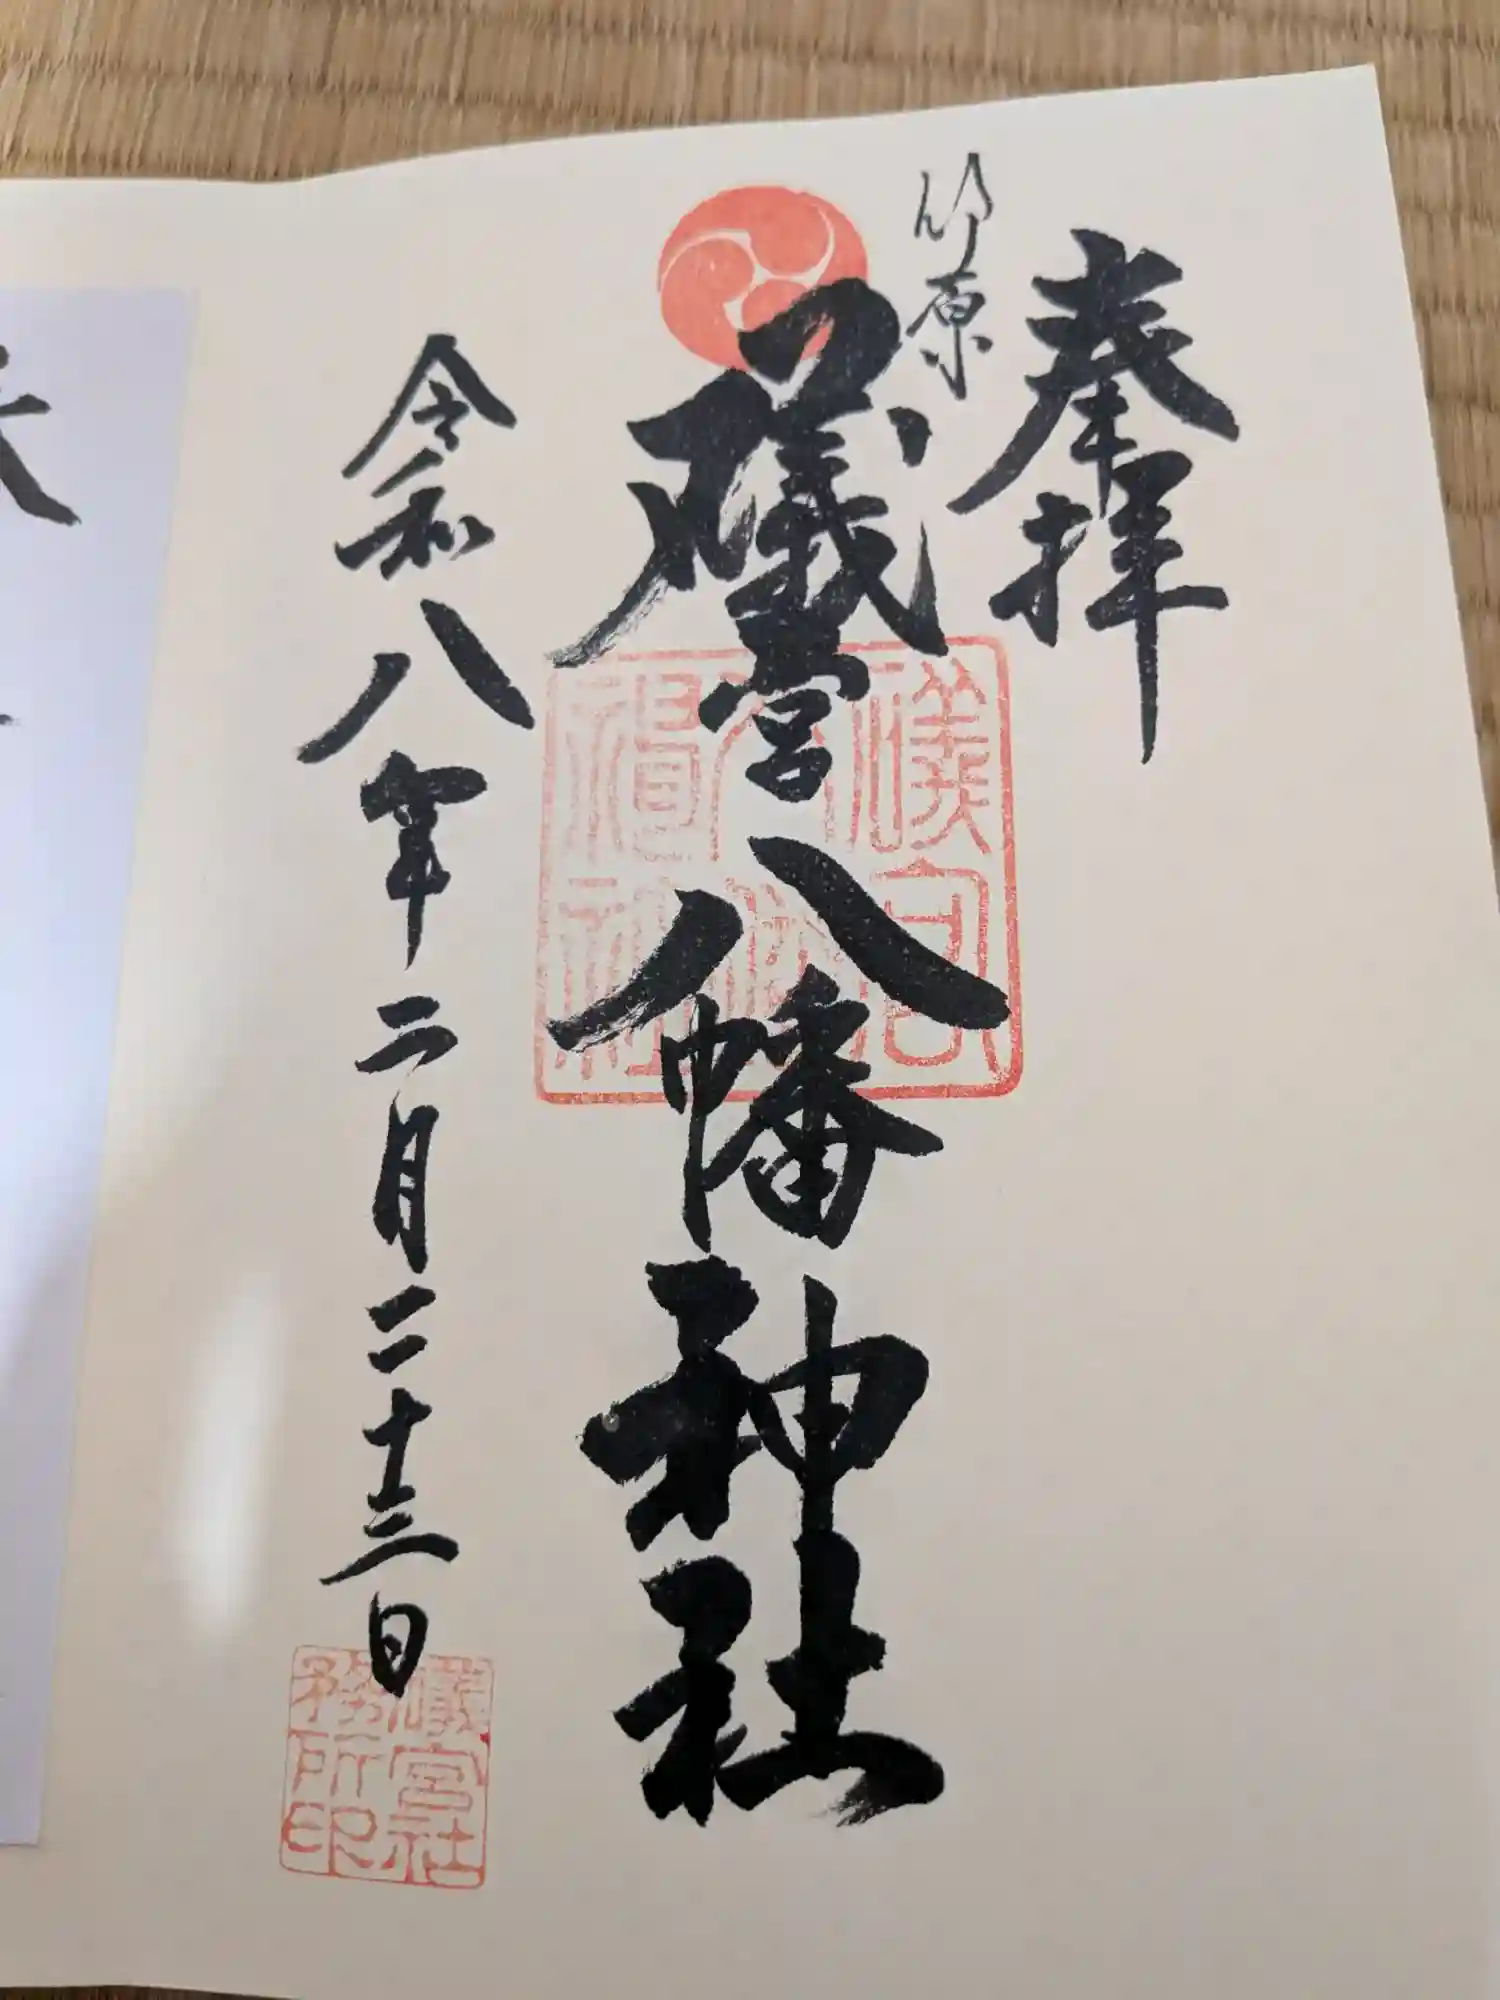 奉拝
竹原
礒宮八幡神社
礒宮八幡神社
令和八年二月二十三日
礒宮社
務所印